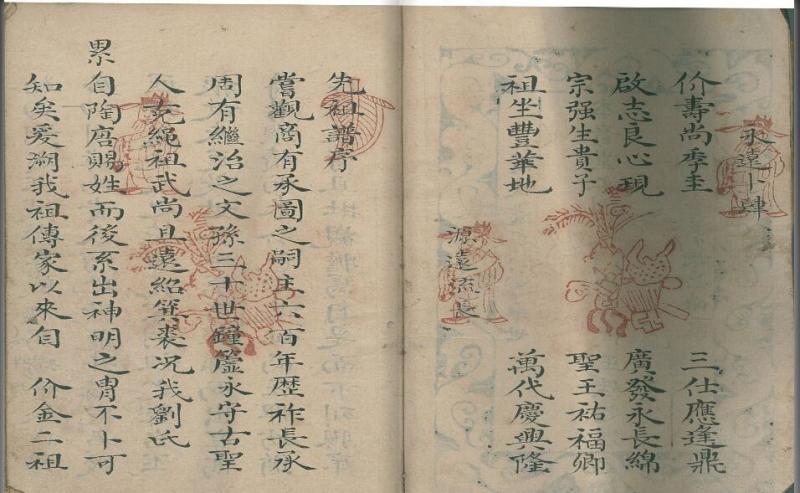 永遠卜肆
价壽尚季圭 三仕應逢鼎
啟志良心現 廣發永長綿
宗强生貴子 聖王祐福卿
祖坐豐華地 萬代慶興隆
源遠流長
先祖譜序
嘗觀商有承圖之嗣主六百年歷祚長承
周有繼治之文孫三十世鐘簴永守古聖
人克繩祖武尚且遠紹箕裘况我劉氏
累自陶唐賜姓而後系出神明之胄不卜可
知矣爰溯我祖傳家以來自 价金二祖